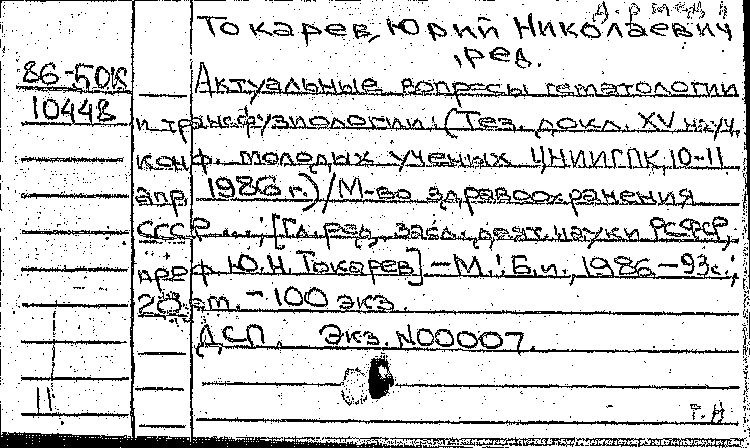 Д. р мед н
Токарев, Юрий Николаевич
, ред.
86-50К
10448
Актуальные вопросы гематологии
и трансфузиологии: (Тез. докл. XV науч.
конф. молодых ученых ЦНИИГПК, 10-11
апр 1986 г.) / М-во здравоохранения
СССР ...; [Гл. ред. засл. деят. науки РСФСР,
проф Ю.Н. Токарев] - М.: Б.и., 1986 - 93с.;
20 см. - 100 экз.
ДСП. Экз. N00007.